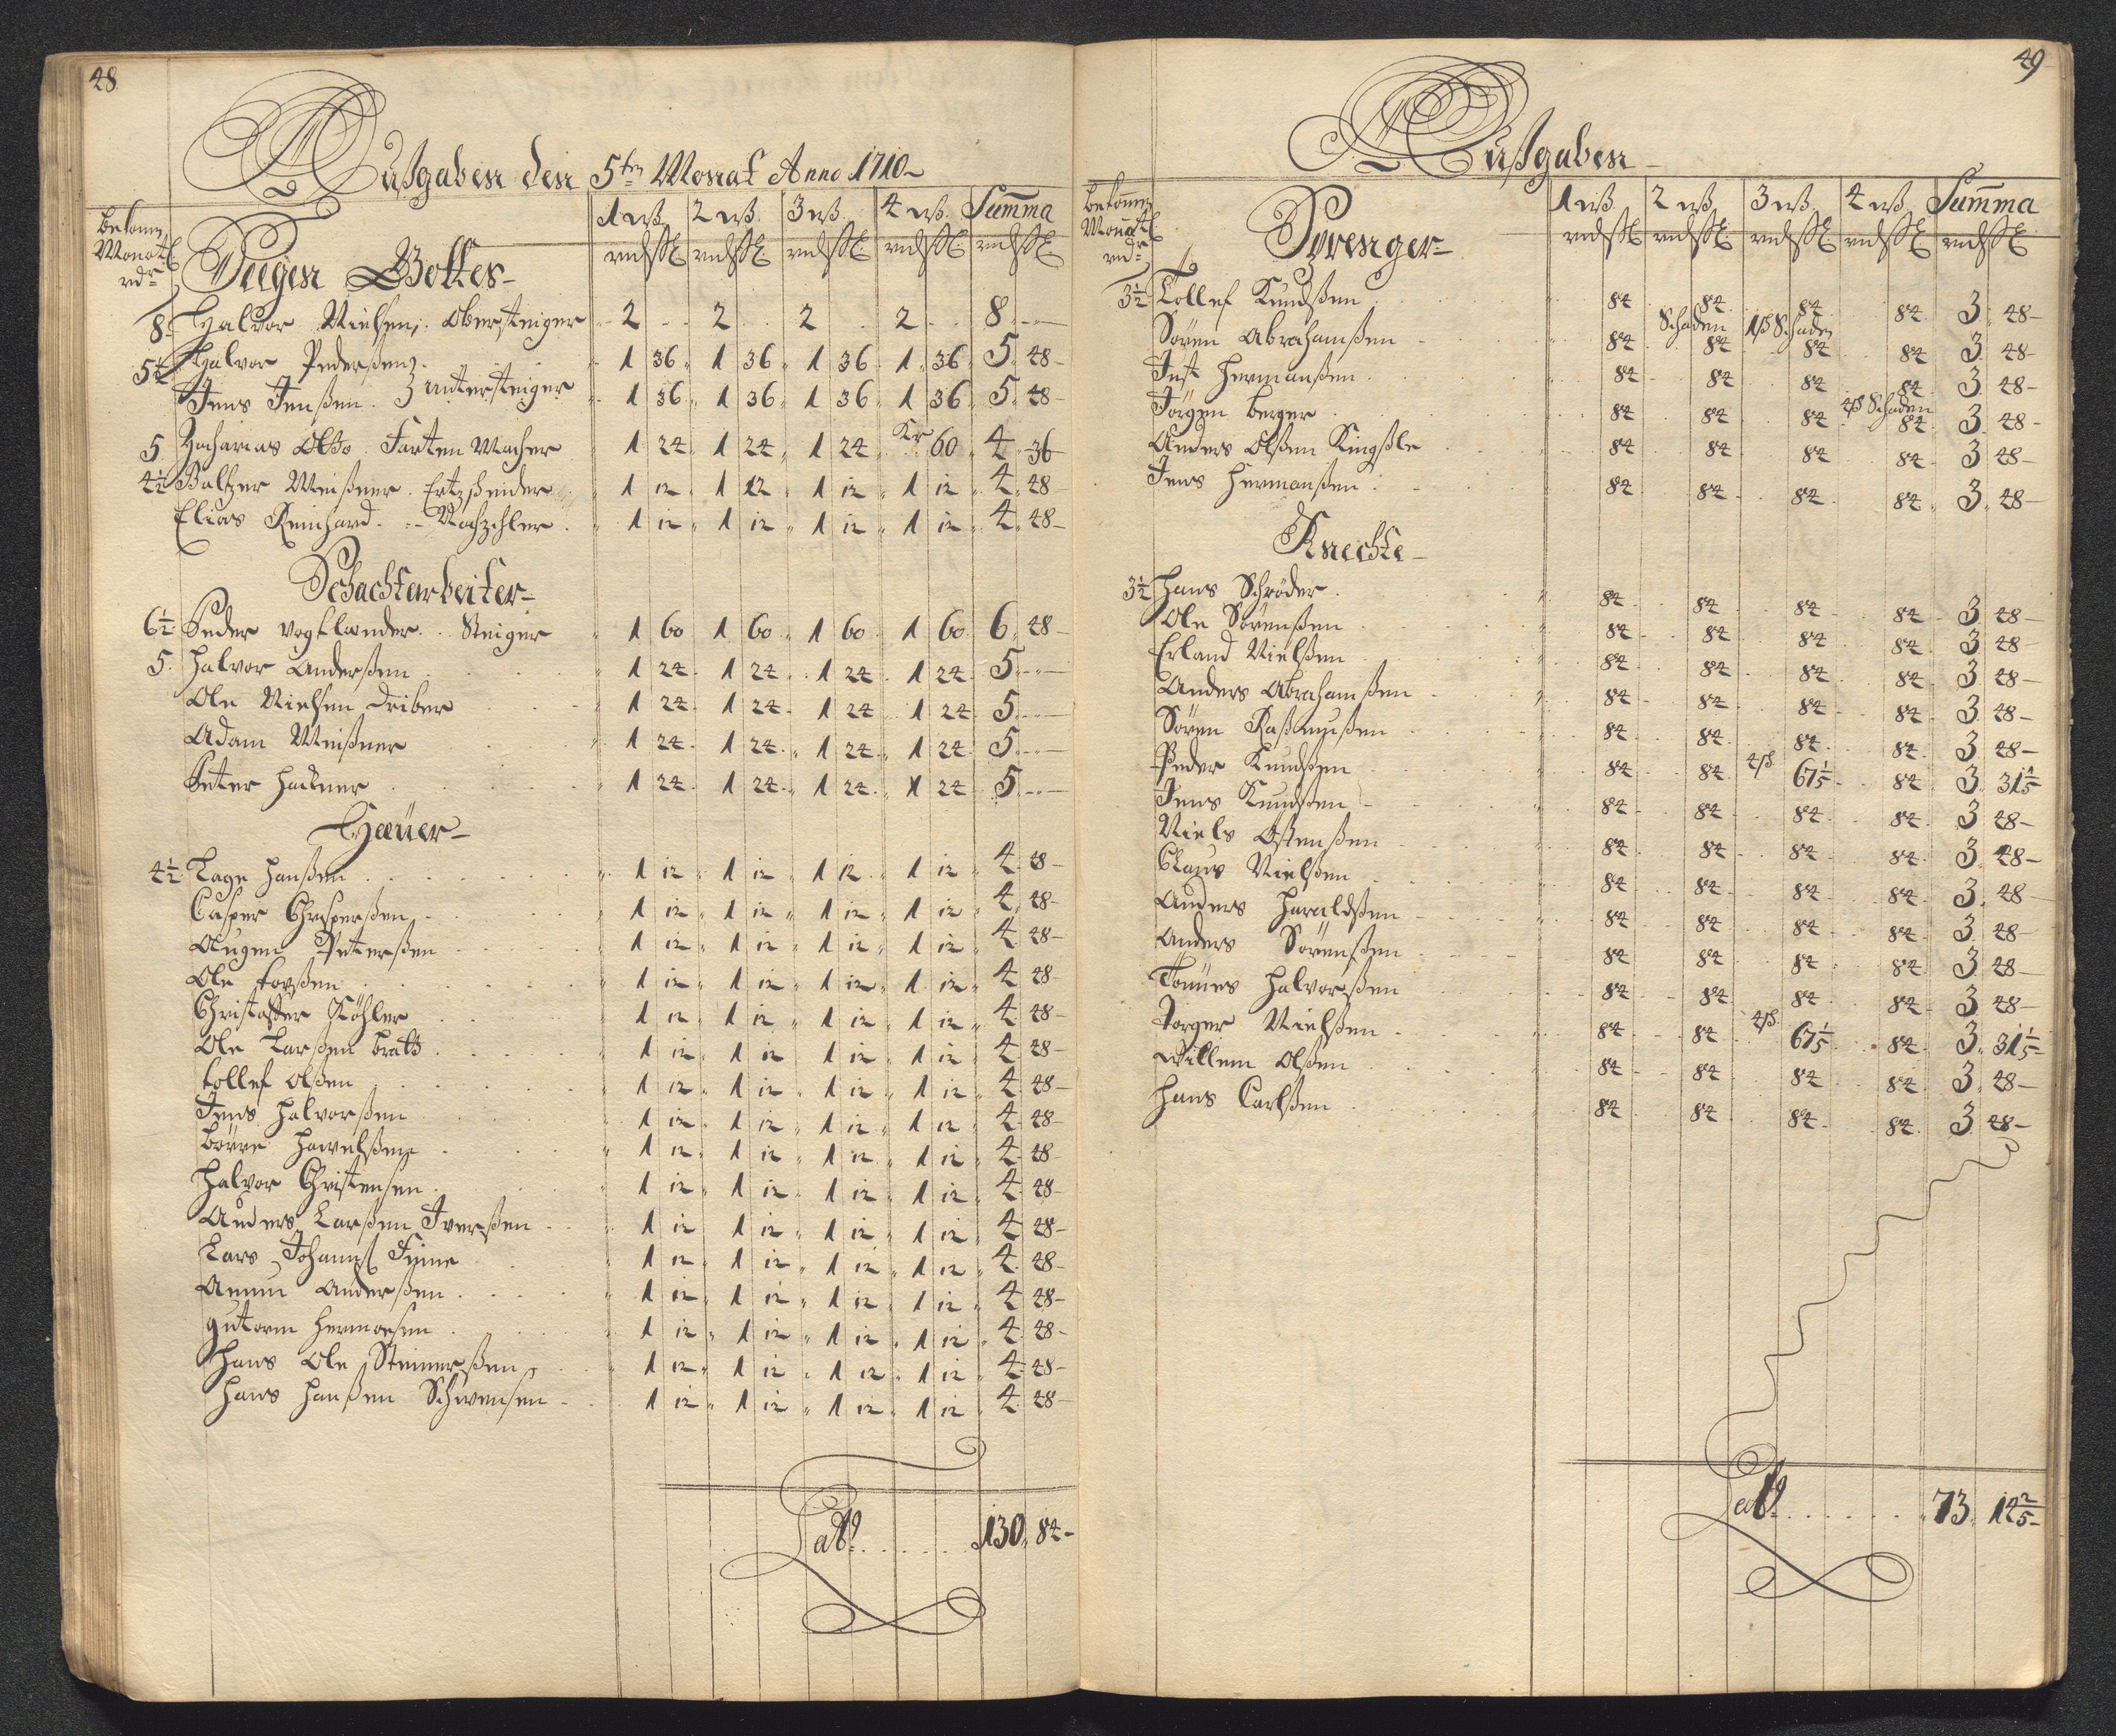 48
Außgaben den 5ten Monat Anno 1710
bekom Monatl rdr
1 wß 2 wß 3 wß 4 wß Summa
Seegen Gottes
8 Halvor Nielsen Obersteiger 2 2 2 2 8
5½ Halvor Pederßen 1 36 1 36 1 36 1 36 5 48
Jens Jenßen untersteiger 1 36 1 36 1 36 1 36 5 48
5 Zacharias Otto 1 24 1 24 1 24 Kr 60 4 36
4½ Baltzer Meißner Ertzscheider 1 12 1 12 1 12 1 12 4 48
Elias Reinhard 1 12 1 12 1 12 1 12 4 48
Schachtarbeiter
6½ Peder Vogtlænder Steiger 1 60 1 60 1 60 1 60 6 48
5 Halvor Anderßen 1 24 1 24 1 24 1 24 5
Ole Nielsen Driber 1 24 1 24 1 24 1 24 5
Adam Meißner 1 24 1 24 1 24 1 24 5
Peter Hackner 1 24 1 24 1 24 1 24 5
Hæuer
4½ Lage Hanßen 1 12 1 12 1 12 1 12 4 48
Casper Chasperßen 1 12 1 12 1 12 1 12 4 48
Augen Peterßen 1 12 1 12 1 12 1 12 4 48
Ole Torßen 1 12 1 12 1 12 1 12 4 48
Christoffer Köhler 1 12 1 12 1 12 1 12 4 48
Ole Larßen bratt 1 12 1 12 1 12 1 12 4 48
tollef Olßen 1 12 1 12 1 12 1 12 4 48
Jens Halvorßen 1 12 1 12 1 12 1 12 4 48
börre 1 12 1 12 1 12 1 12 4 48
Halvor Christensen 1 12 1 12 1 12 1 12 4 48
Anders Larßen Iverßen 1 12 1 12 1 12 1 12 4 48
Lars Johanß Finne 1 12 1 12 1 12 1 12 4 48
Amun Anderßen 1 12 1 12 1 12 1 12 4 48
guttorm Hermoesen 1 12 1 12 1 12 1 12 4 48
Hans Ole Steinerßen 1 12 1 12 1 12 1 12 4 48
Hans Hanßen Schwensen 1 12 1 12 1 12 1 12 4 48
Latꝰ 130 84
49
Außgaben
bekomm Monatl rdr
1 wß 2 wß 3 wß 4 wß Summa
Sprenger
3½ Tollef Knudßen 84 84 84 84 3 48
Sören Abrahamßen 84 Schaden 84 1ß Schaden 84 84 3 48
Just Hermanßen 84 84 84 84 3 48
Jörgen Berger 84 84 84 4ß Schaden 84 3 48
Anders Olßen Kingßle 84 84 84 84 3 48
Jens Hermanßen 84 84 84 84 3 48
Knechte
3½ Hans Schröder 84 84 84 84 3 48
Ole Sörenßen 84 84 84 84 3 48
Erland Nielßen 84 84 84 84 3 48
Anders Abrahamßen 84 84 84 84 3 48
Sören Raßmußen 84 84 84 84 3 48
Peder Knudßen 84 84 4ß 67⅕ 84 3 31⅕
Jens Knudßen 84 84 84 84 3 48
Niels Ostenßen 84 84 84 84 3 48
Claus Nielßen 84 84 84 84 3 48
Anders Haraldßen 84 84 84 84 3 48
Anders Sörenßen 84 84 84 84 3 48
Tönnes Halvorßen 84 84 84 84 3 48
Torger Nielßen 84 84 4ß 67⅕ 84 3 31⅕
Willem Olßen 84 84 84 84 3 48
Hans Carlßen 84 84 84 84 3 48
Latꝰ 73 14⅖